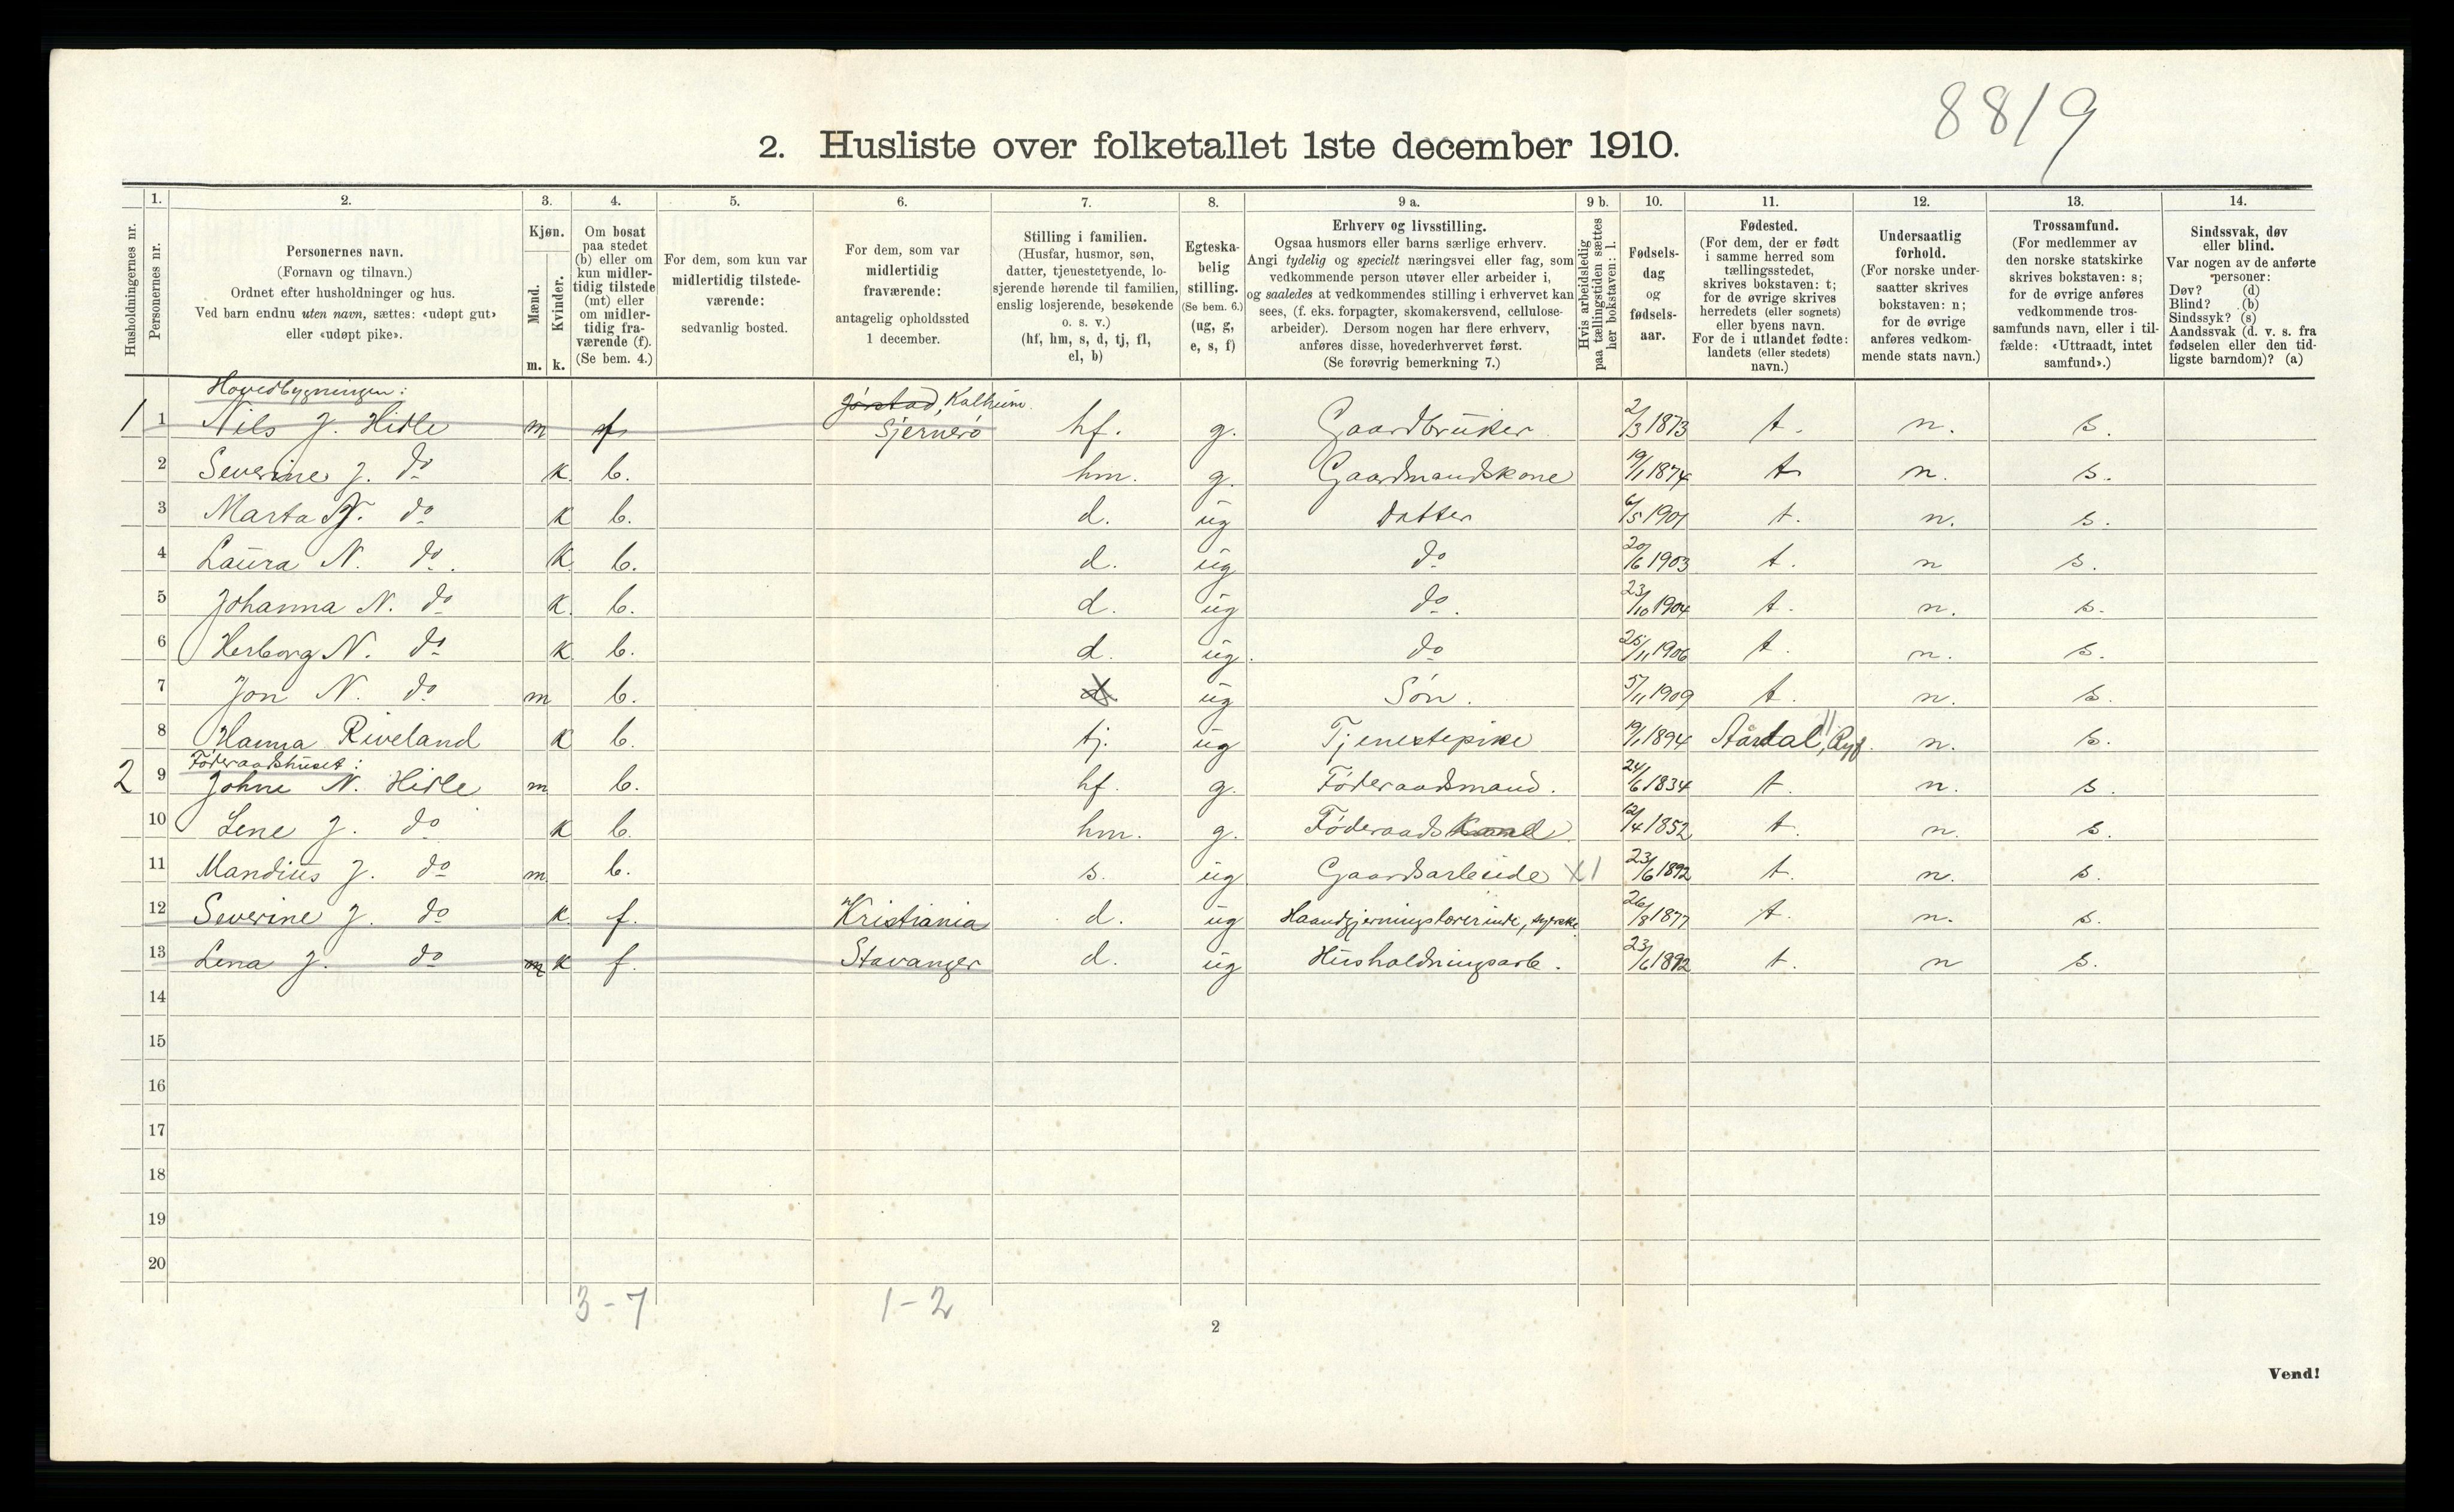 8819
2. Husliste over folketallet 1ste december 1910.
Husholdningernes nr.
1.
Personernes nr.
2.
Personernes navn.
(Fornavn og tilnavn.)
Ordnet efter husholdninger og hus.
Ved barn endnu uten navn, sættes: «udøpt gut»
eller «udøpt pike».
3.
Kjøn.
Mænd.
Kvinder.
m. k.
4.
Om bosat
paa stedet
(b) eller om
kun midler-
tidig tilstede
(mt) eller
om midler-
tidig fra-
værende (f).
(Se bem. 4.)
5.
For dem, som kun var
midlertidig tilstede-
værende:
sedvanlig bosted.
6.
For dem, som var
midlertidig
fraværende:
antagelig opholdssted
1 december.
7.
Stilling i familien.
(Husfar, husmor, søn,
datter, tjenestetyende, lo-
sjerende hørende til familien,
enslig losjerende, besøkende
o. s. v.)
(hf, hm, s, d, tj, fl,
el, b)
8.
Egteska-
belig
stilling.
(Se bem. 6.)
(ug, g,
e, s, f)
9 a.
Erhverv og livsstilling.
Ogsaa husmors eller barns særlige erhverv.
Angi tydelig og specielt næringsvei eller fag, som
vedkommende person utøver eller arbeider i,
og saaledes at vedkommendes stilling i erhvervet kan
sees, (f. eks. forpagter, skomakersvend, cellulose-
arbeider). Dersom nogen har flere erhverv,
anføres disse, hovederhvervet først.
(Se forøvrig bemerkning 7.)
9 b.
Hvis arbeidsledig
paa tællingstiden sættes
her bokstaven: l.
10.
Fødsels-
dag
og
fødsels-
aar.
11.
Fødested.
(For dem, der er født
i samme herred som
tællingsstedet,
skrives bokstaven: t;
for de øvrige skrives
herredets (eller sognets)
eller byens navn.
For de i utlandet fødte:
landets (eller stedets)
navn.)
12.
Undersaatlig
forhold.
(For norske under-
saatter skrives
bokstaven: n;
for de øvrige
anføres vedkom-
mende stats navn.)
13.
Trossamfund.
(For medlemmer av
den norske statskirke
skrives bokstaven: s;
for de øvrige anføres
vedkommende tros-
samfunds navn, eller i til-
fælde: «Uttraadt, intet
samfund».)
14.
Sindssvak, døv
eller blind.
Var nogen av de anførte
personer:
Døv? (d)
Blind? (b)
Sindssyk? (s)
Aandssvak (d. v. s. fra
fødselen eller den tid-
ligste barndom)? (a)
Hovedbygningen: Jørstad, Kalheim
1 1 Nils J. Hidle m f Sjernerø hf. g. Gaardbruker 2/3 1873 t. n. s.
2 Severine J. do k. b. hm. g. Gaardmandskone 19/1 1874 t n. s.
3 Marta N. do k b. d. ug Datter 6/5 1901 t. n. s.
4 Laura N. do. k b. d. ug do 20/6 1903 t. n s.
5 Johanna N. do k. b. d. ug do. 23/10 1904 t. n. s.
6 Herborg N. do k b. d. ug. do 25/11 1906 t. n. s.
7 Jon N. do m b. d ug Søn. 5/11 1909 t. n. s.
8 Hanna Riveland k b. tj. ug Tjenestepike 19/1 1894 Aårdal, Ryf. n. s.
Føderaadshuset:
2 9 Johne N. Hidle m b. hf. g. Føderaadsmand. 24/6 1834 t. n. s.
10 Lene J. do k b. hm. g. Føderaads 12/4 1852 t. n. s.
11 Mandius J. do m b. s. ug Gaardsarbeide X1 23/6 1892 t. n. s.
12 Severine J. do k. f. Kristiania d. ug Haandgjerningslærerinde, syerske 26/8 1877 t. n. s.
13 Lena J. do m k f. Stavanger d. ug Husholdningsarb. 23/6 1892 t. n s.
14
15
16
17
18
19
20
3-7 1-2
2
Vend!